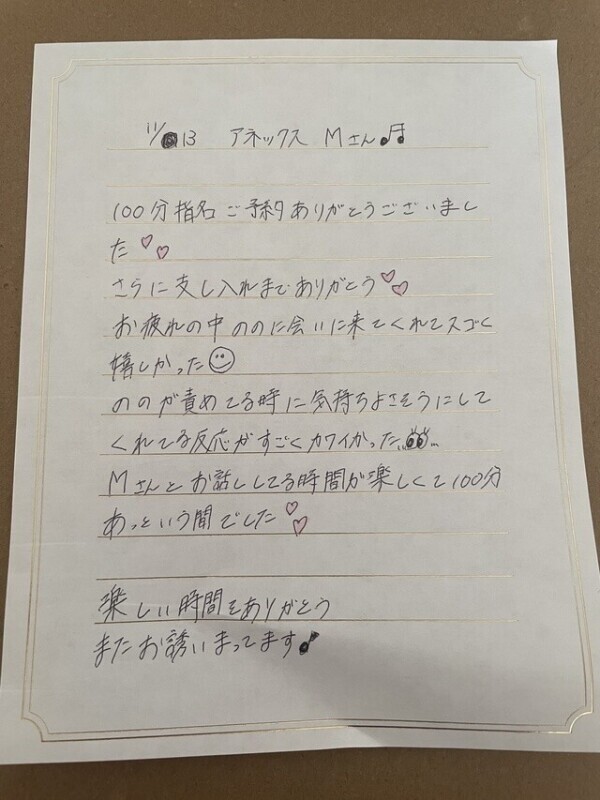 11/13 アネックス Mさん♪♬
100分指名ご予約ありがとうございまし
た♡♡
さらに支し入れまでありがとう♡♡
お疲れの中ののに会いに来てくれてスゴく
嬉しかった☺
ののが責めてる時に気持ちよさそうにして
くれてる反応がすごくカワイかった...
Mさんとお話ししてる時間が楽しくて100分
あっという間でした♡♡
楽しい時間をありがとう
またお誘いまってます♪